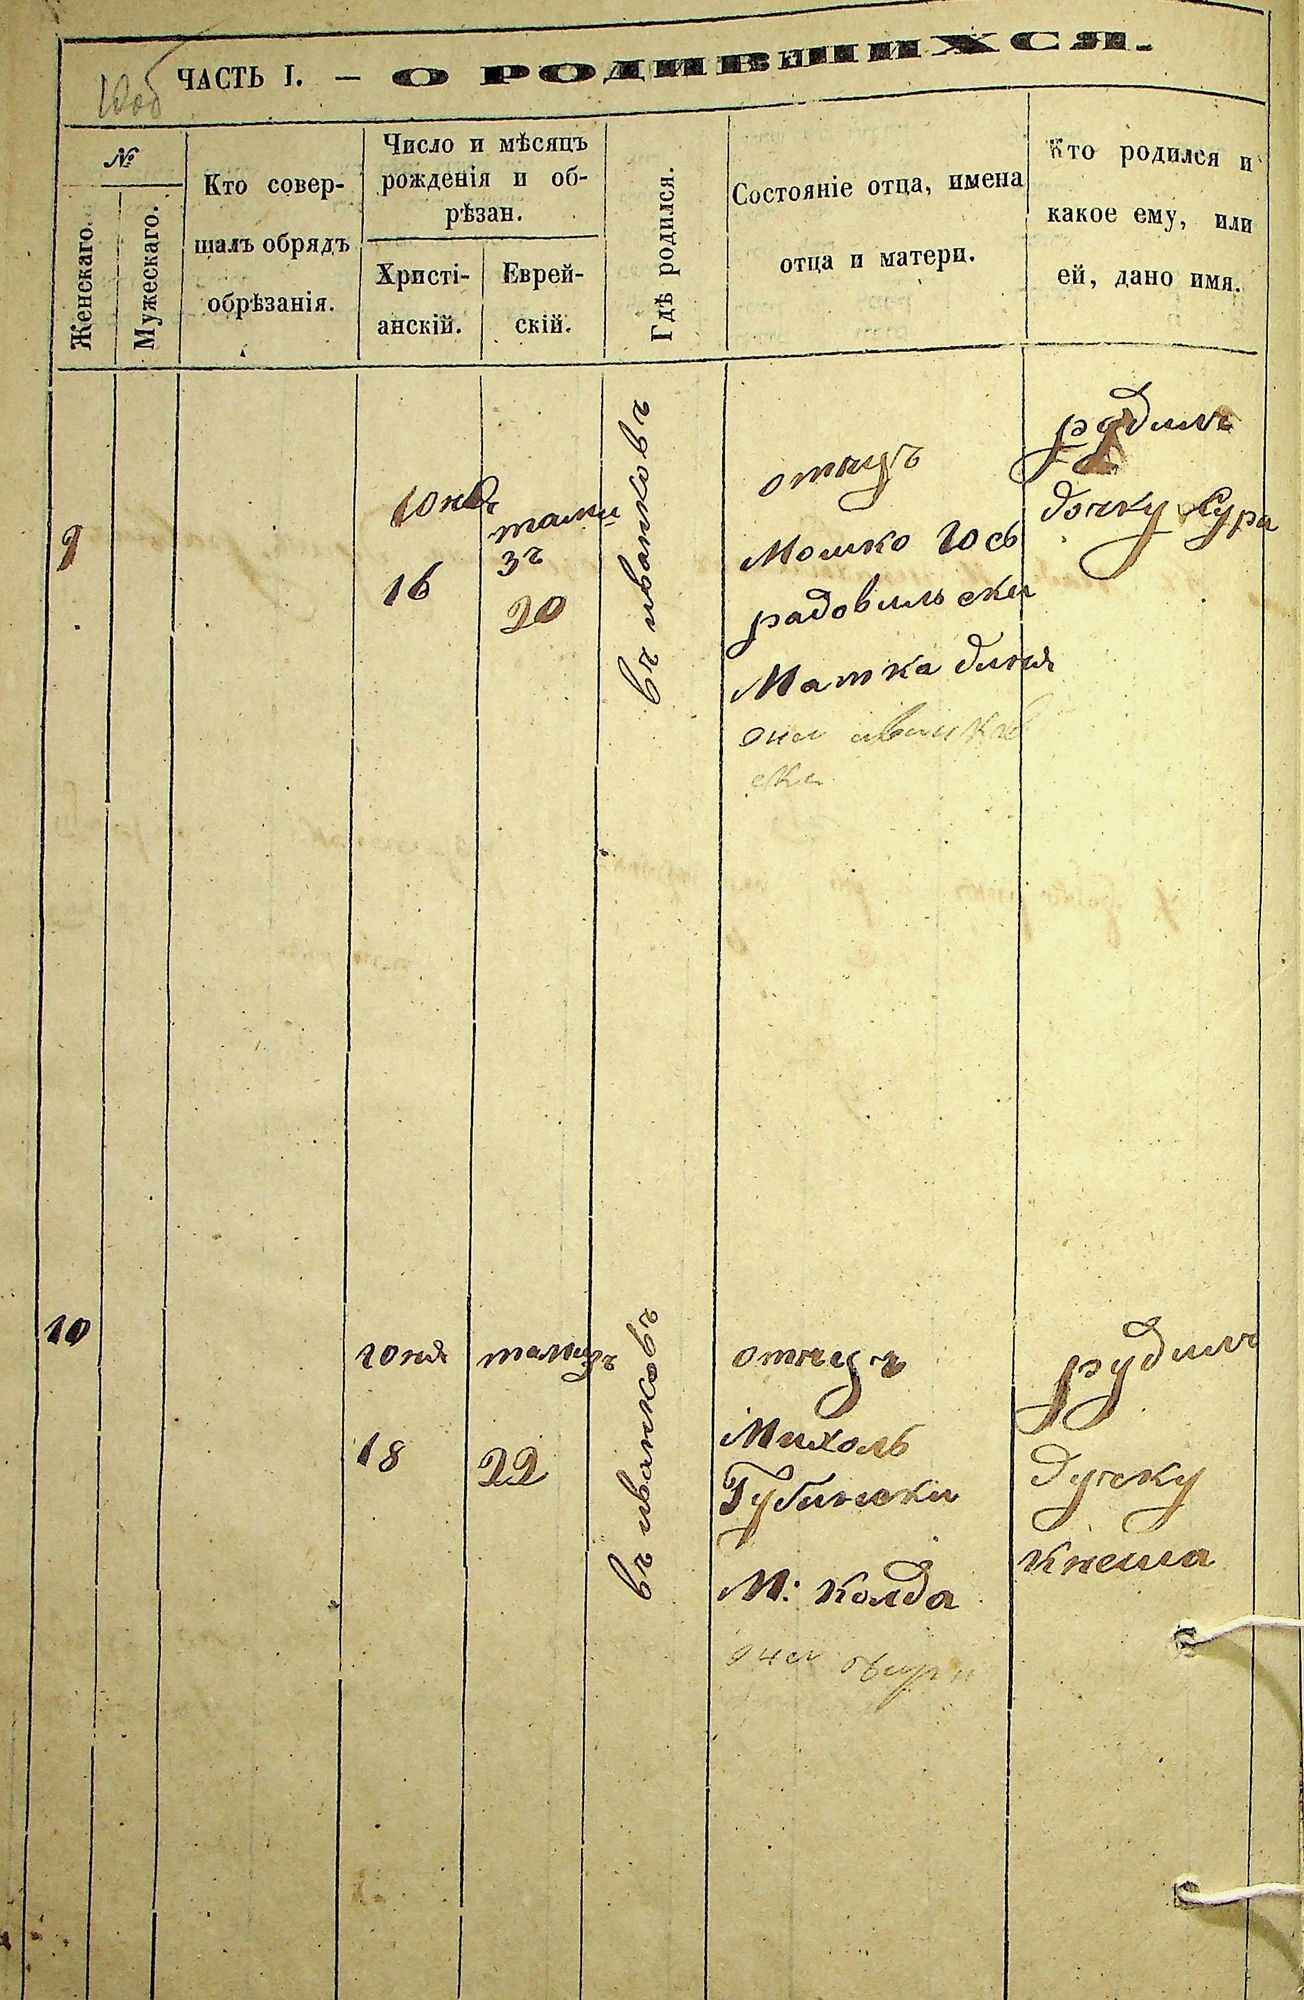 ЧАСТЬ I. — О РОДИВШИХСЯ.
№
Женскаго.
Мужескаго.
Кто совер-
шалъ обрядъ
обрѣзанія.
Число и мѣсяцъ
рожденія и об-
рѣзан.
Христі-
анскій.
Еврей-
скій.
Гдѣ родился.
Состояніе отца, имена
отца и матери.
Кто родился и
какое ему, или
ей, дано имя.
9
Юня
16
тами
зъ
20
въ иванковъ
отецъ
Мошко Юсь
радовильски
Матка диня
они
ски
родилъ
дочку Сура
10
юня
18
тамизъ
22
въ иванковъ
отецъ
Михоль
Губински
М: колда
они
рудилъ
дучку
кнеша